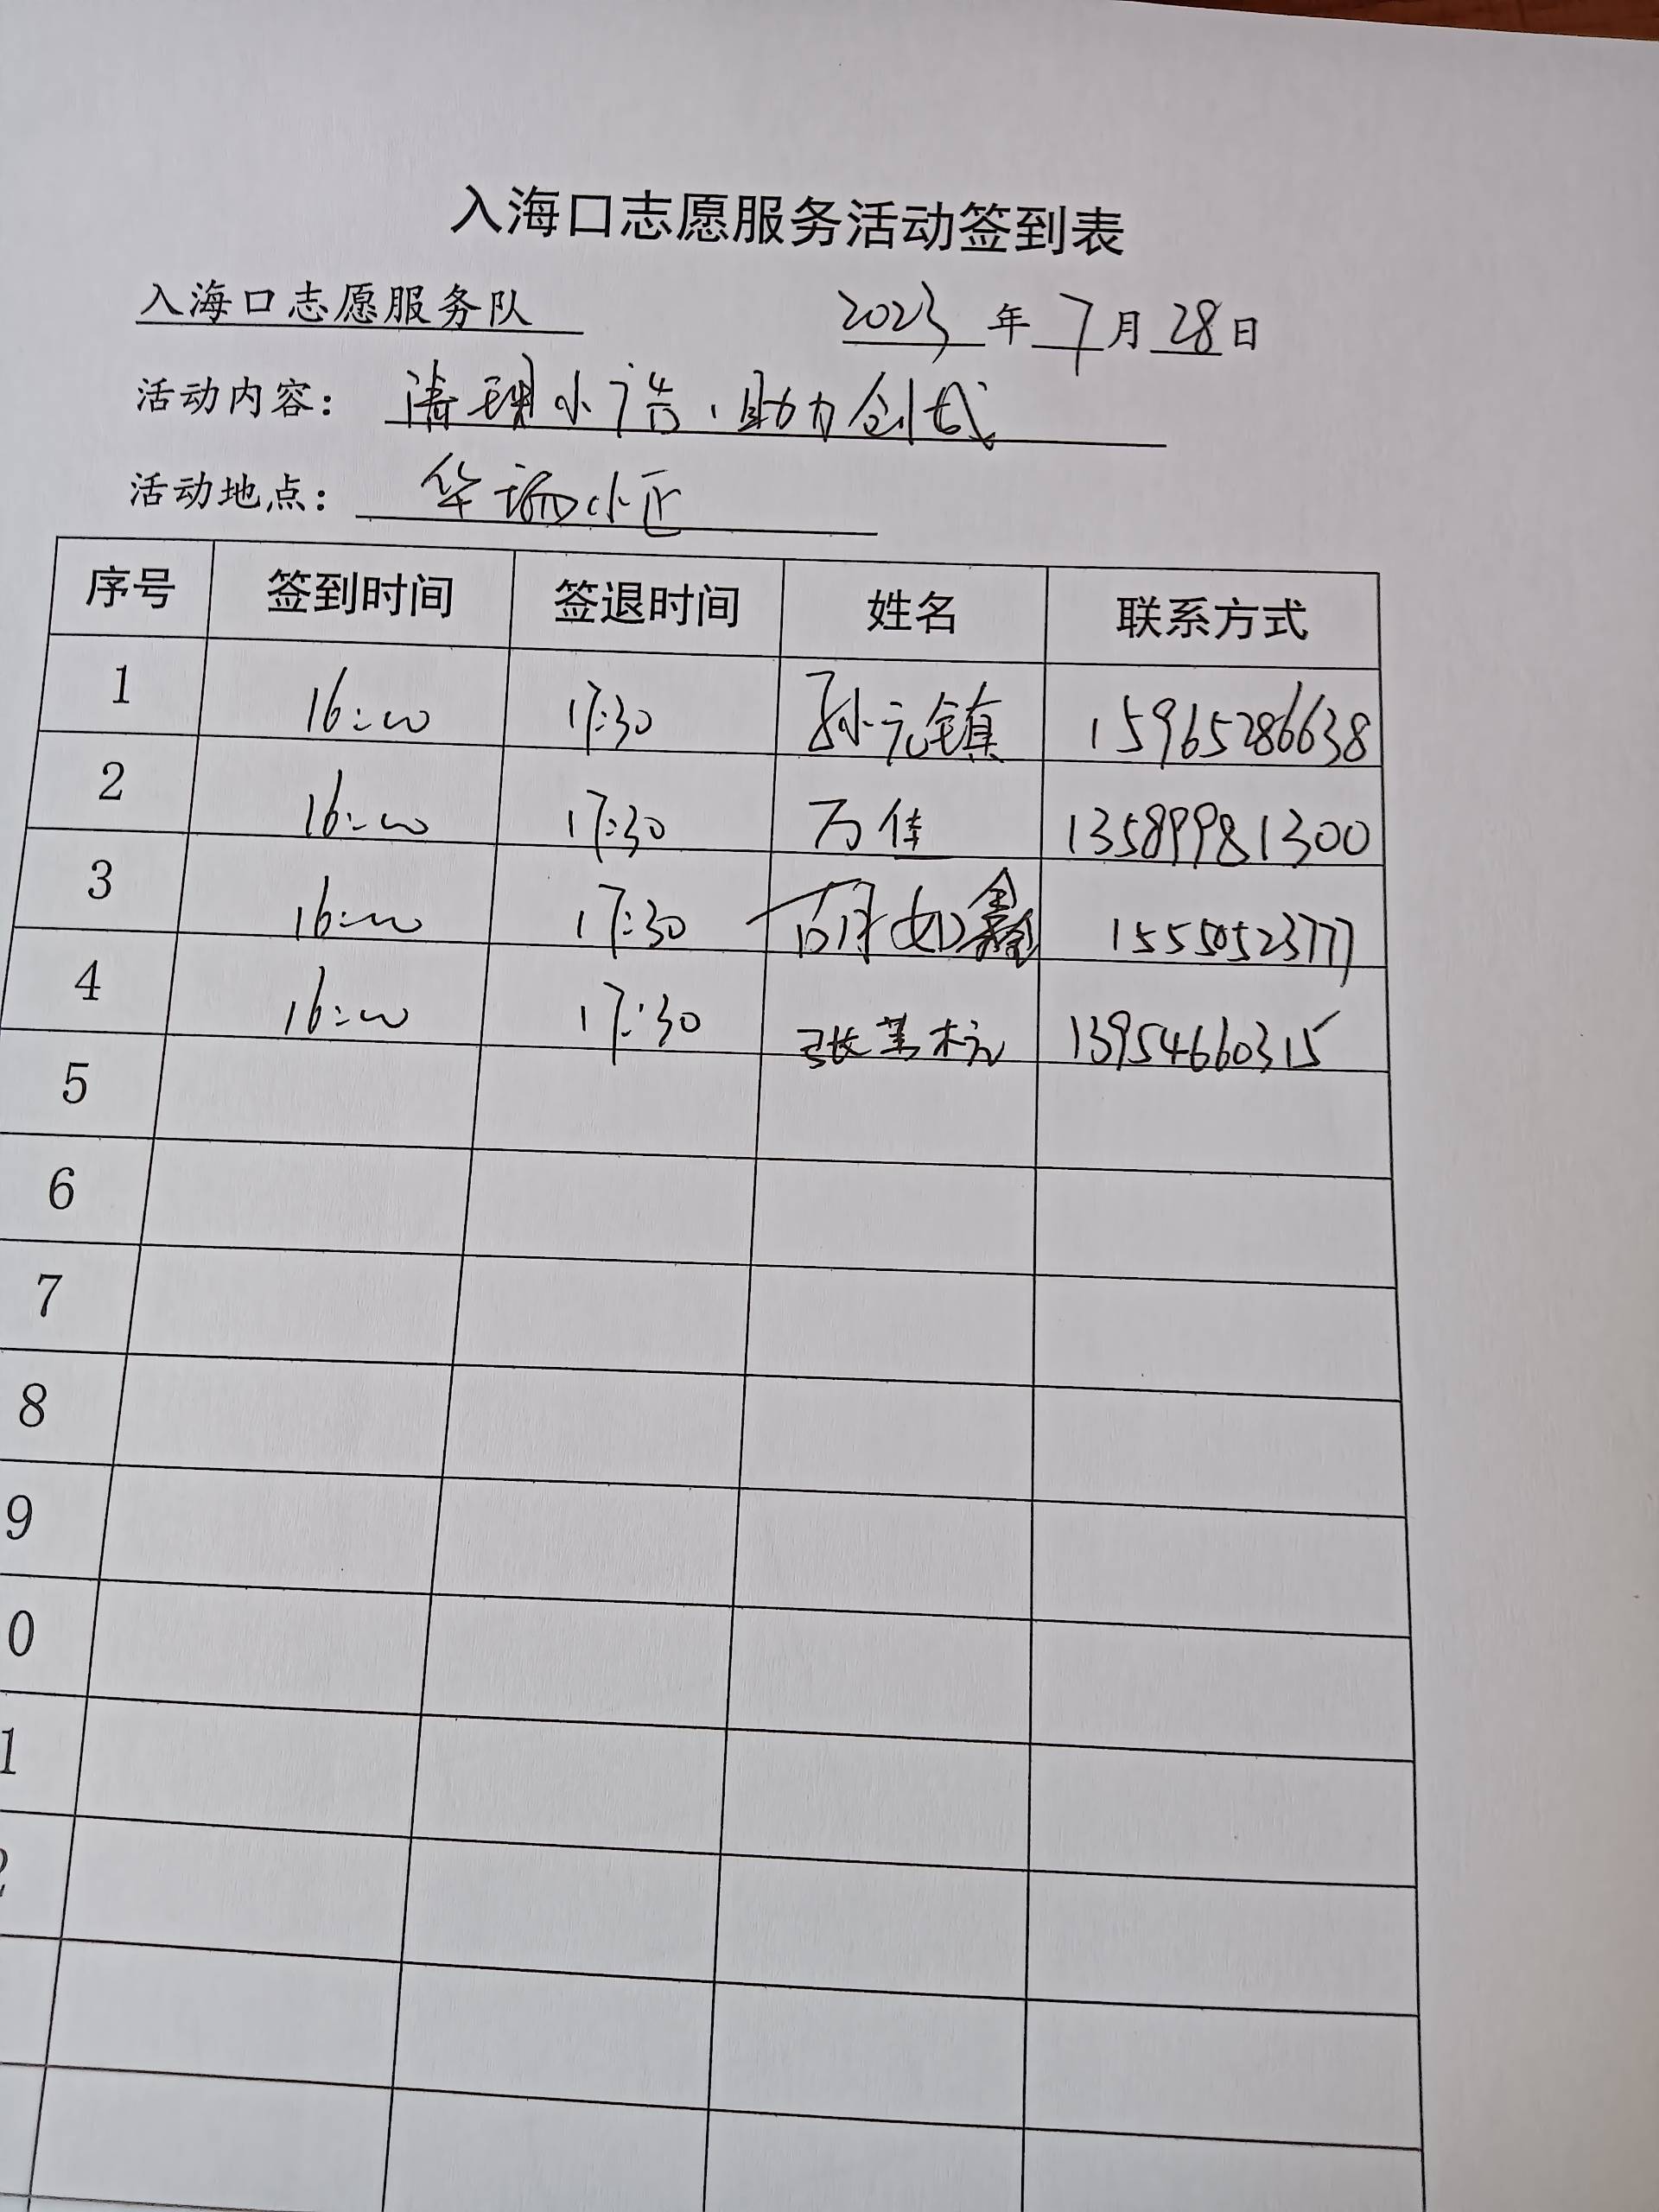 入海口志愿服务活动签到表
入海口志愿服务队 2023年7月28日
活动内容：清理小广告、助力创城
活动地点：华瑞小区
序号 签到时间 签退时间 姓名 联系方式
1 16:00 17:30 孙元镇 15965286638
2 16:00 17:30 万佳 13589981300
3 16:00 17:30 胡如鑫 15550523777
4 16:00 17:30 张 13954660315
5
6
7
8
9
0
1
2